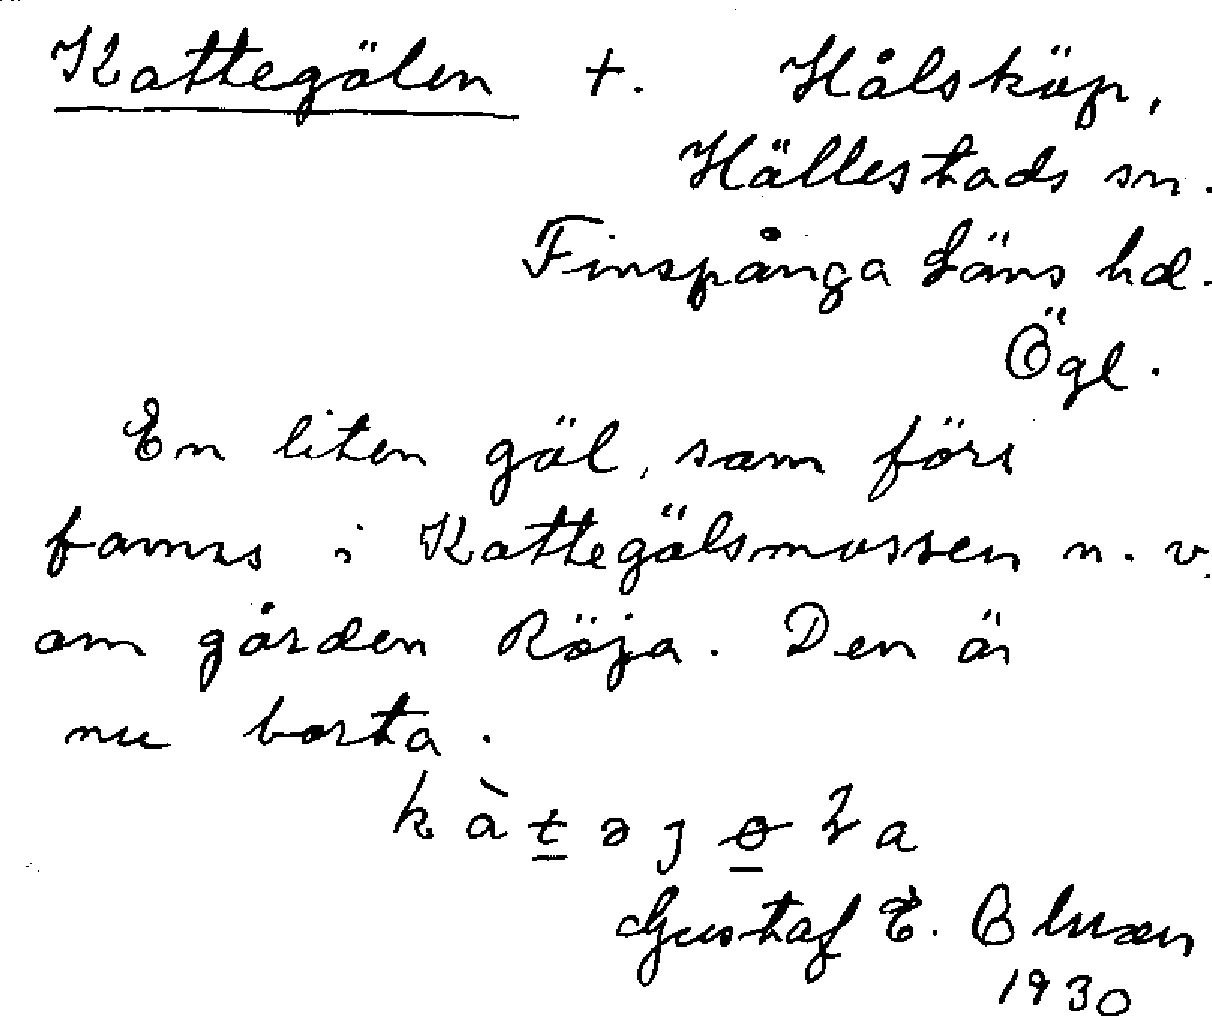 Kattegölen +. Hålsköp,
Hällestads sn.
Finspånga Läns hd.
Ögl.
En liten göl, som förr
fanns i Kattegölsmossen n. v.
om gården Röja. Den är
nu borta.
Gustaf E.
1930